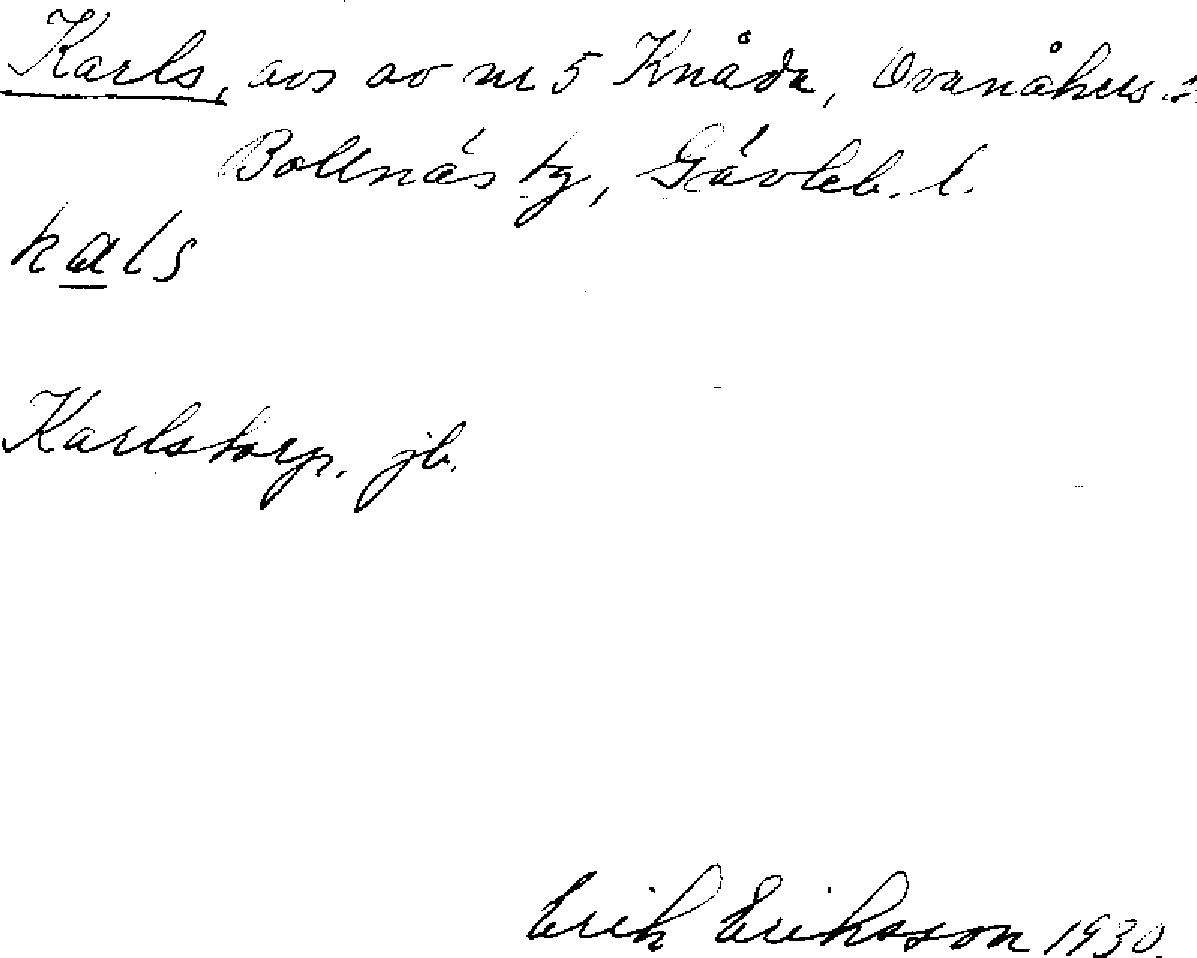 Karls, avs av nr 5 Knåda, Ovanåkers s
Bollnäs tg, Gävleb. l.
kals
Karlstorp. jb.
Erik Eriksson 1930.